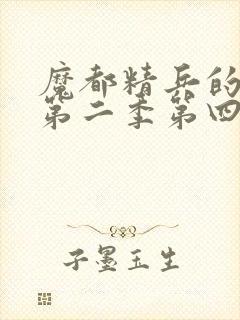 魔都精兵的
第二季第四
子墨玉生